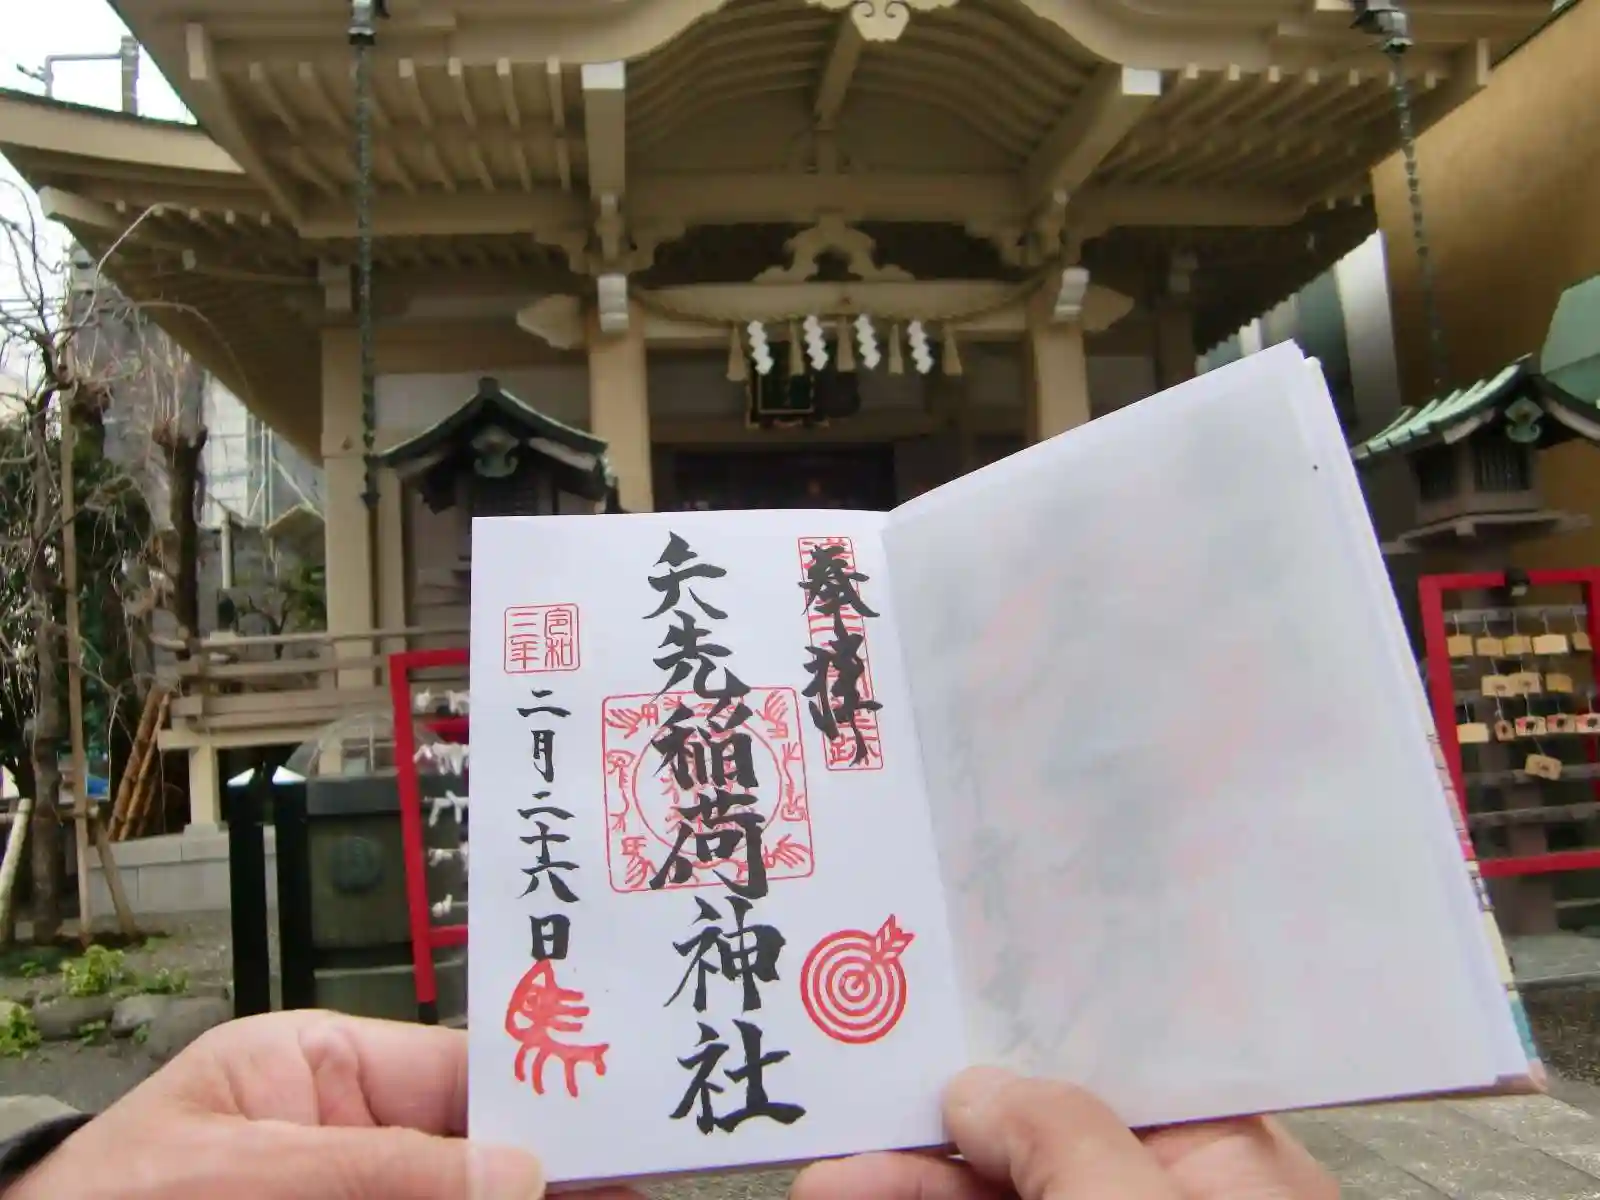 奉拝
矢先稲荷神社
令和三年
二月二十六日